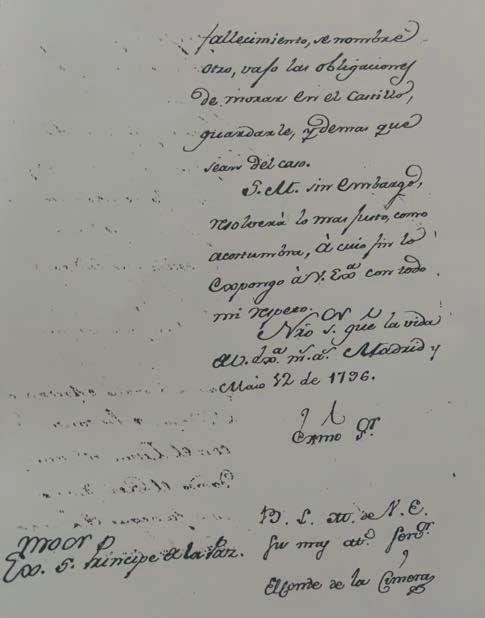 fallecimiento, se nombre
otro, vaso las obligaciones
de morar en el Castillo,
guardarle, y demas que
sean del caso.
S. M. sin embargo,
resolverà lo mas justo, como
acostumbra, à cuio fin lo
Expongo à V. Exª con todo
mi respeto.
Nrõ S. gue la vida
de V. Exª mˢ aˢ Madrid y
Maio 12 de 1796.
Exmo Sʳ
B. L. M. de V. E.
su mas atº servʳ
El Conde de la
Exo. S. Principe de la Paz.